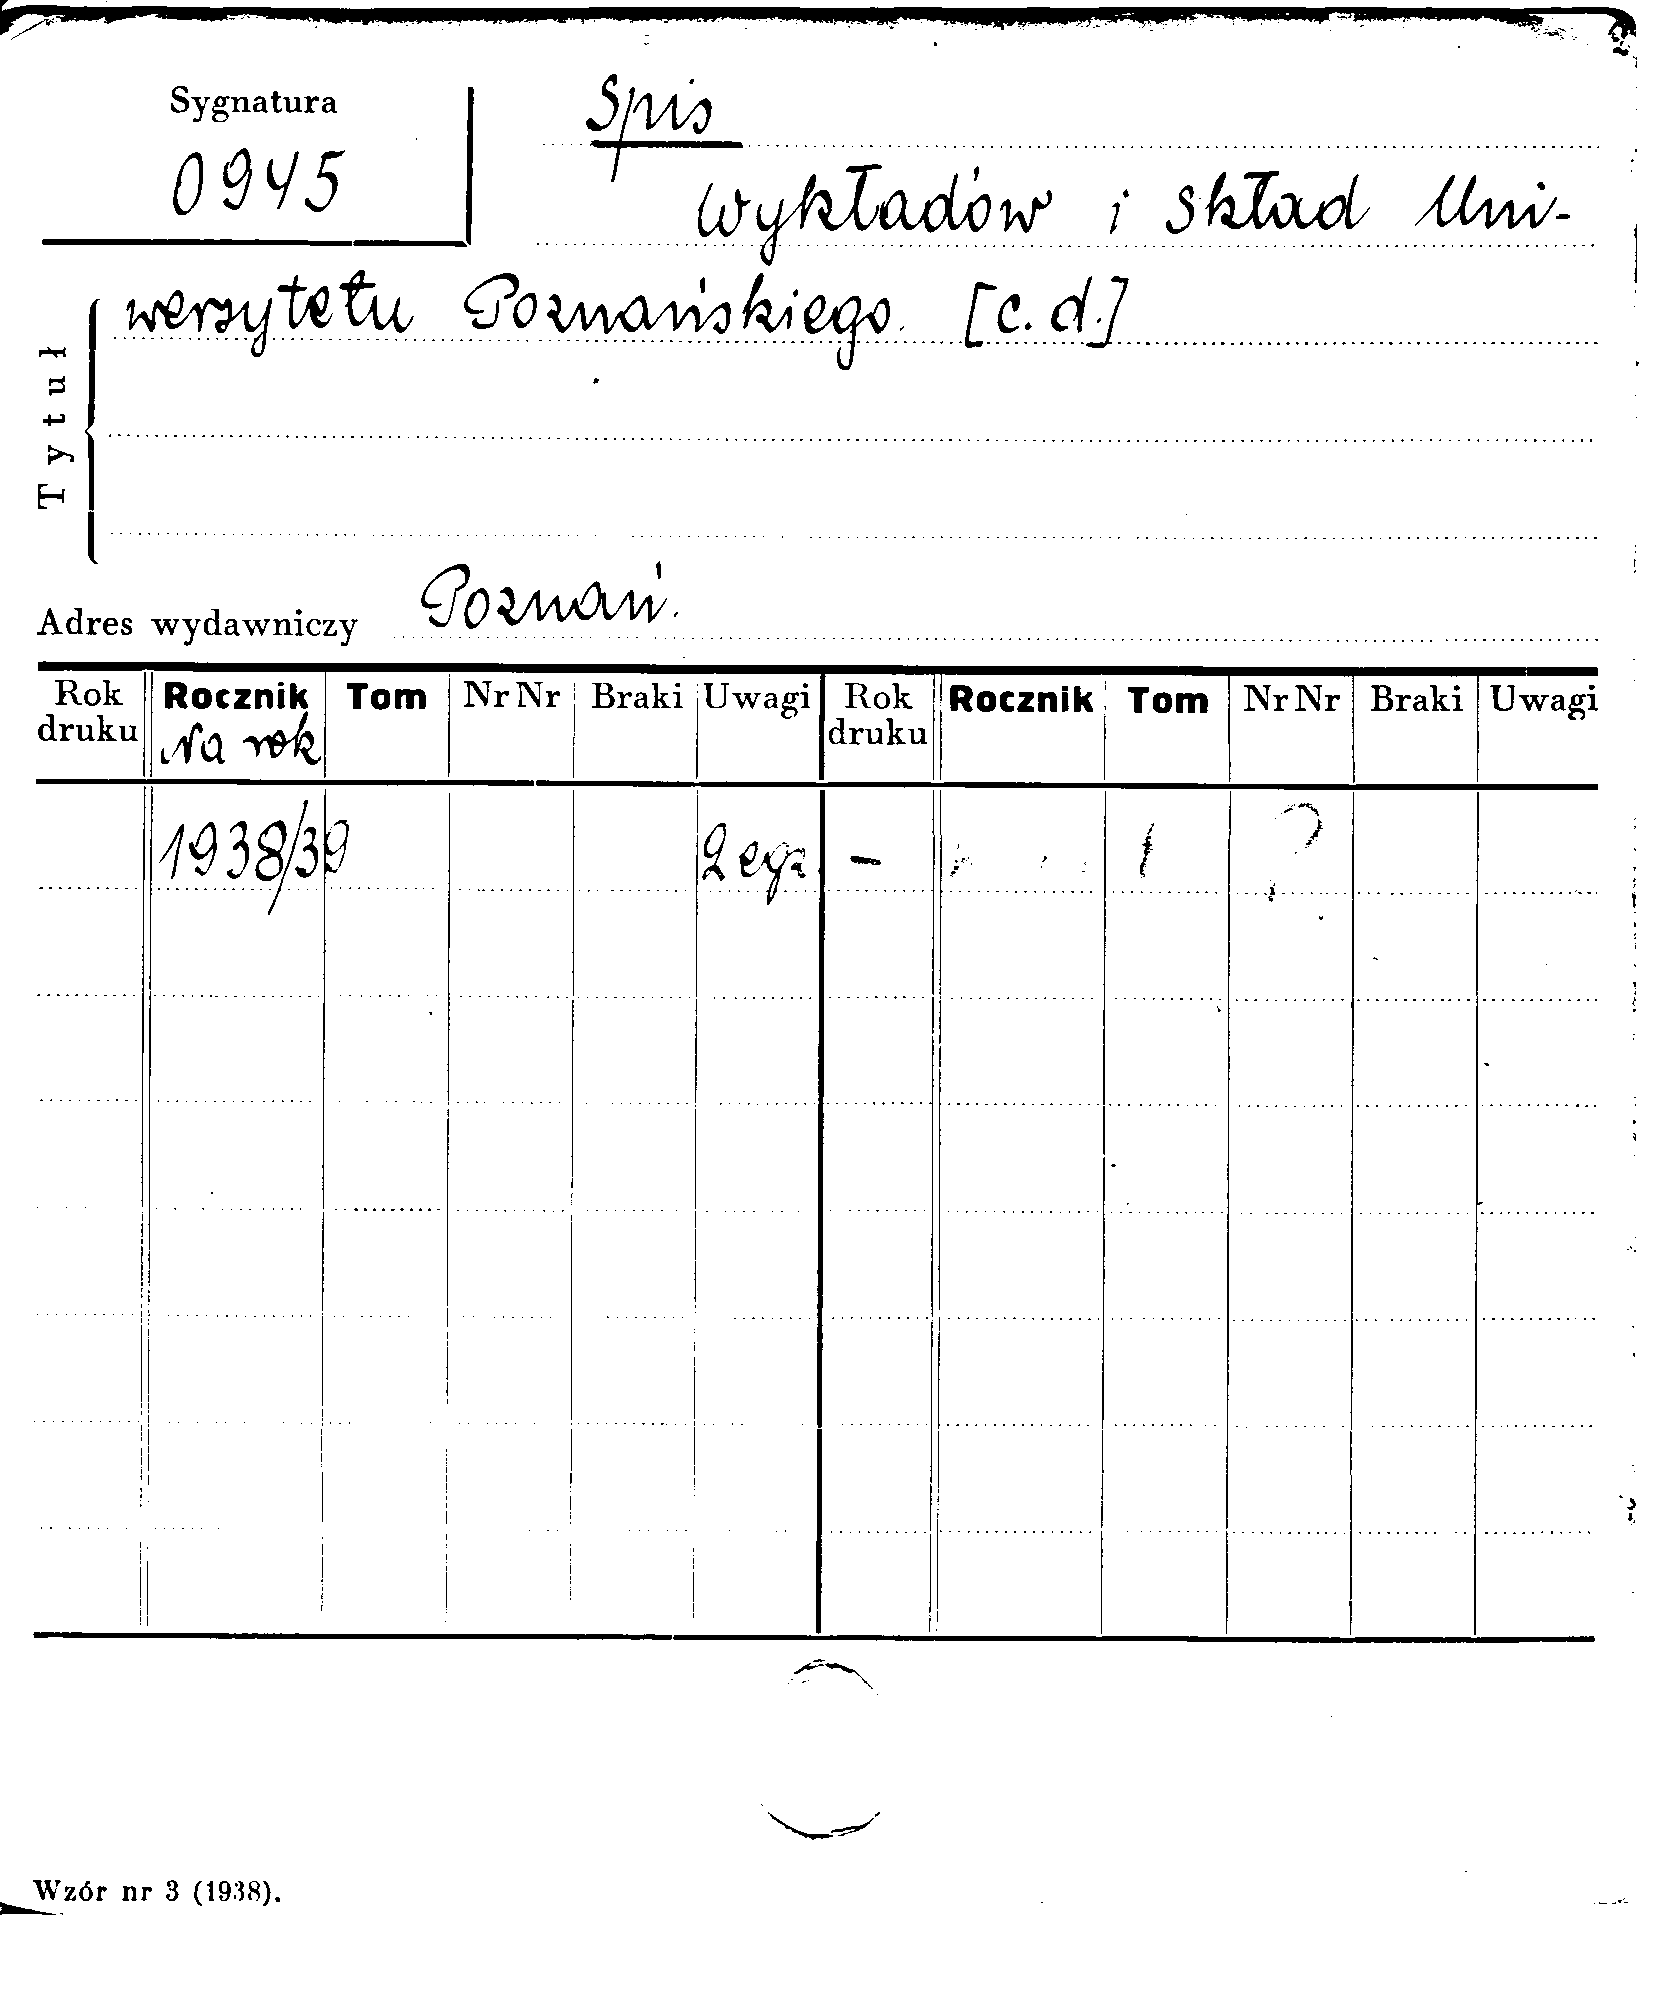 Sygnatura
0945
Spis
wykładów i skład Uni-
wersytetu Poznańskiego. [c.d.]
Tytuł
Adres wydawniczy Poznań.
Rok druku Rocznik Tom Nr Nr Braki Uwagi Rok druku Rocznik Tom Nr Nr Braki Uwagi
Na rok
1938/39 2 egz. –
Wzór nr 3 (1938).